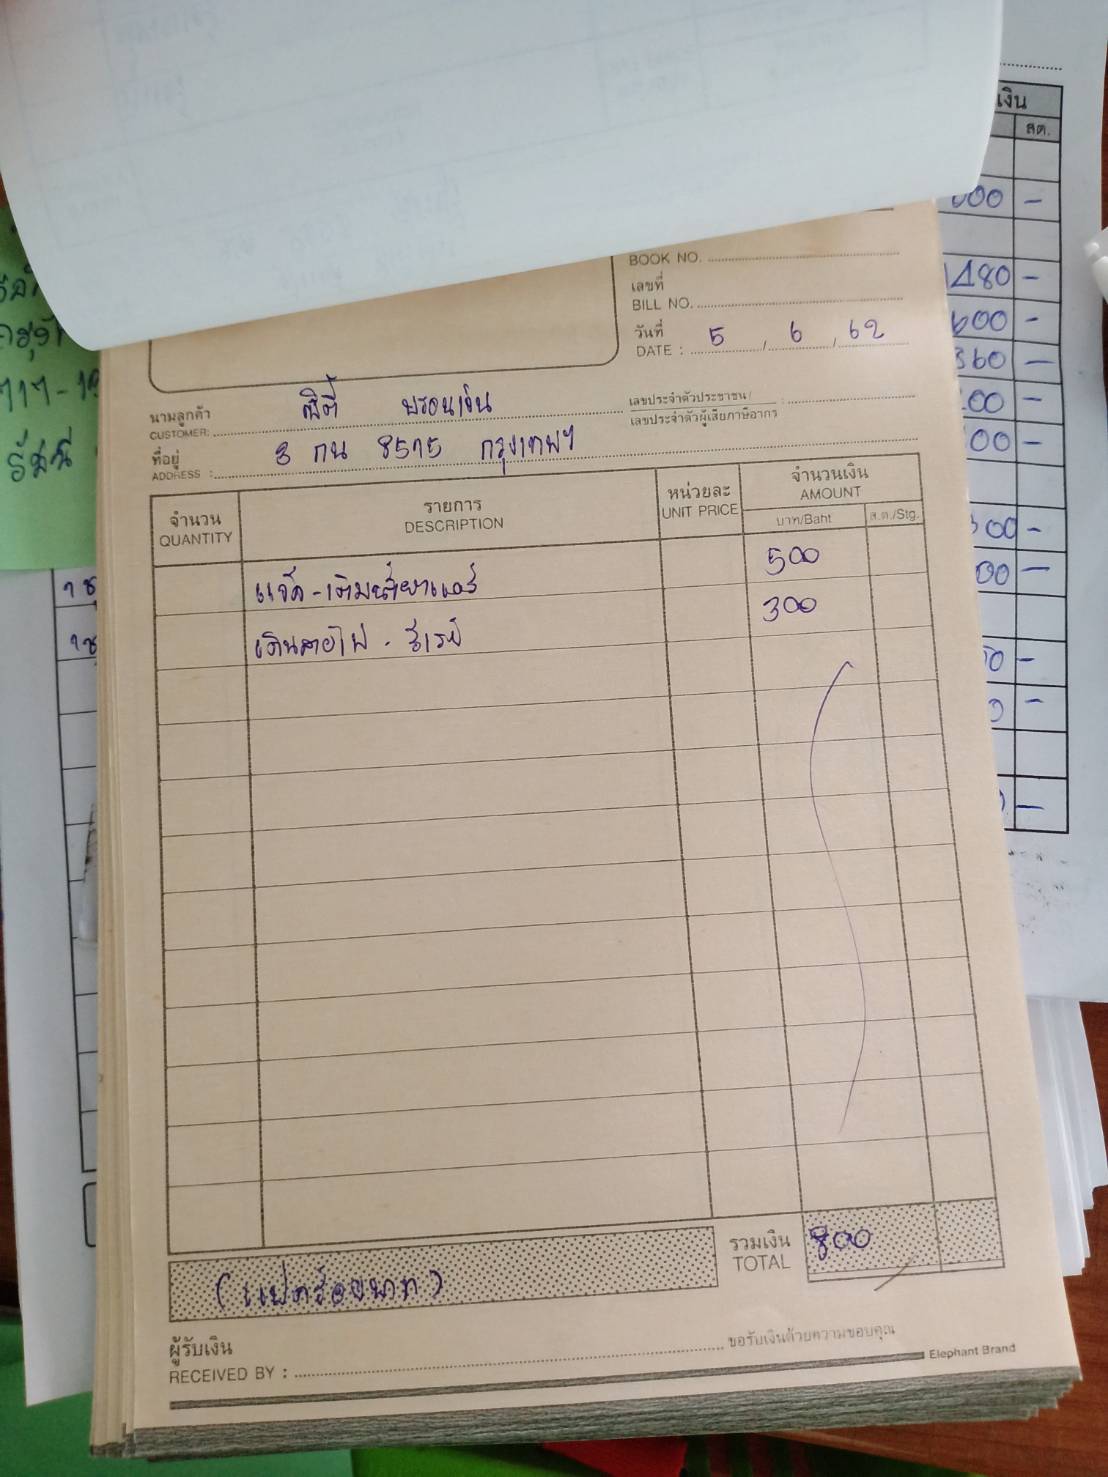 เงิน
สต.
000 -
1480 -
600 -
360 -
00 -
00 -
300 -
00 -
50 -
0 -
BOOK NO.
เลขที่
BILL NO.
วันที่
DATE : 5 , 6 , 62
นามลูกค้า
CUSTOMER:
เลขประจำตัวประชาชน/
เลขประจำตัวผู้เสียภาษีอากร
ที่อยู่
ADDRESS : 3 กน 8515 กรุงเทพฯ
จำนวน
QUANTITY
รายการ
DESCRIPTION
หน่วยละ
UNIT PRICE
จำนวนเงิน
AMOUNT
บาท/Baht
ส.ต./Stg.
แจ็ค-เติมน้ำยาแอร์ 500
เดินสายไฟ - รีเรย์ 300
(แปดร้อยบาท)
รวมเงิน
TOTAL 800
ผู้รับเงิน
RECEIVED BY :
ขอรับเงินด้วยความขอบคุณ
Elephant Brand